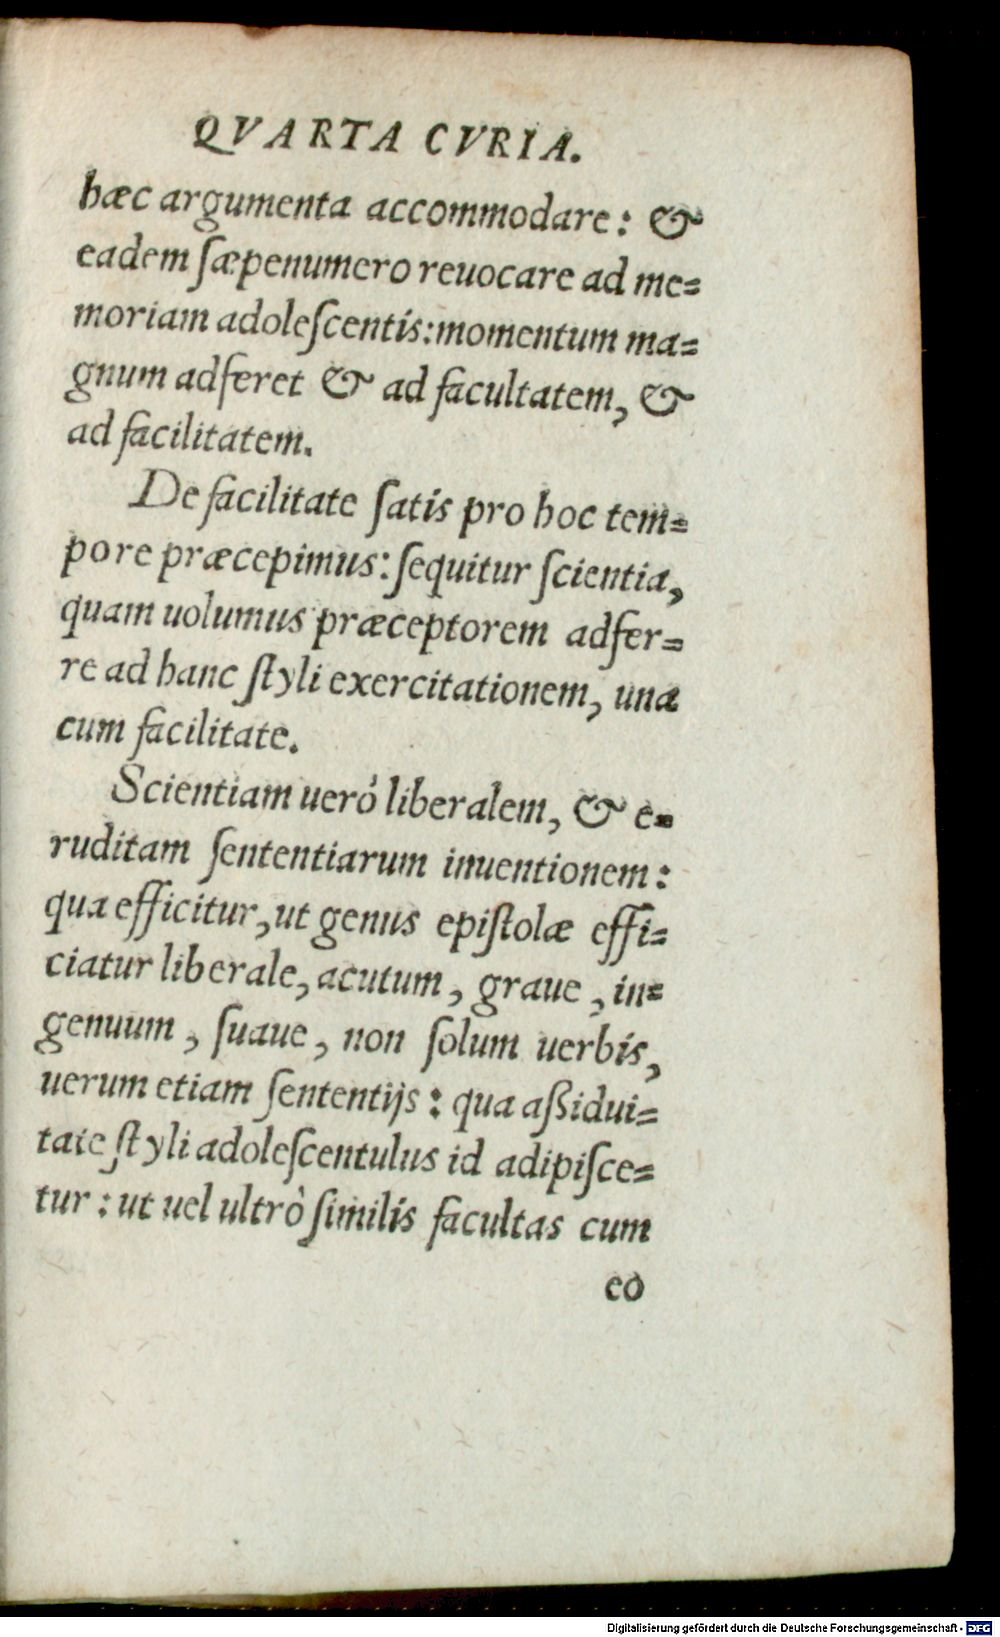 QVARTA CVRIA.
hæc argumenta accommodare: &
eadem ſæpenumero reuocare ad me=
moriam adoleſcentis: momentum ma=
gnum adferet & ad facultatem, &
ad facilitatem.
De facilitate ſatis pro hoc tem=
pore præcepimus: ſequitur ſcientia,
quam uolumus præceptorem adfer=
re ad hanc ſtyli exercitationem, una
cum facilitate.
Scientiam uerò liberalem, & e=
ruditam ſententiarum inuentionem:
qua efficitur, ut genus epiſtolæ effi=
ciatur liberale, acutum, graue, in=
genuum, ſuaue, non ſolum uerbis,
uerum etiam ſententijs: qua aßidui=
tate ſtyli adoleſcentulus id adipiſce=
tur: ut uel ultrò ſimilis facultas cum
eo
Digitalisierung gefördert durch die Deutsche Forschungsgemeinschaft - DFG